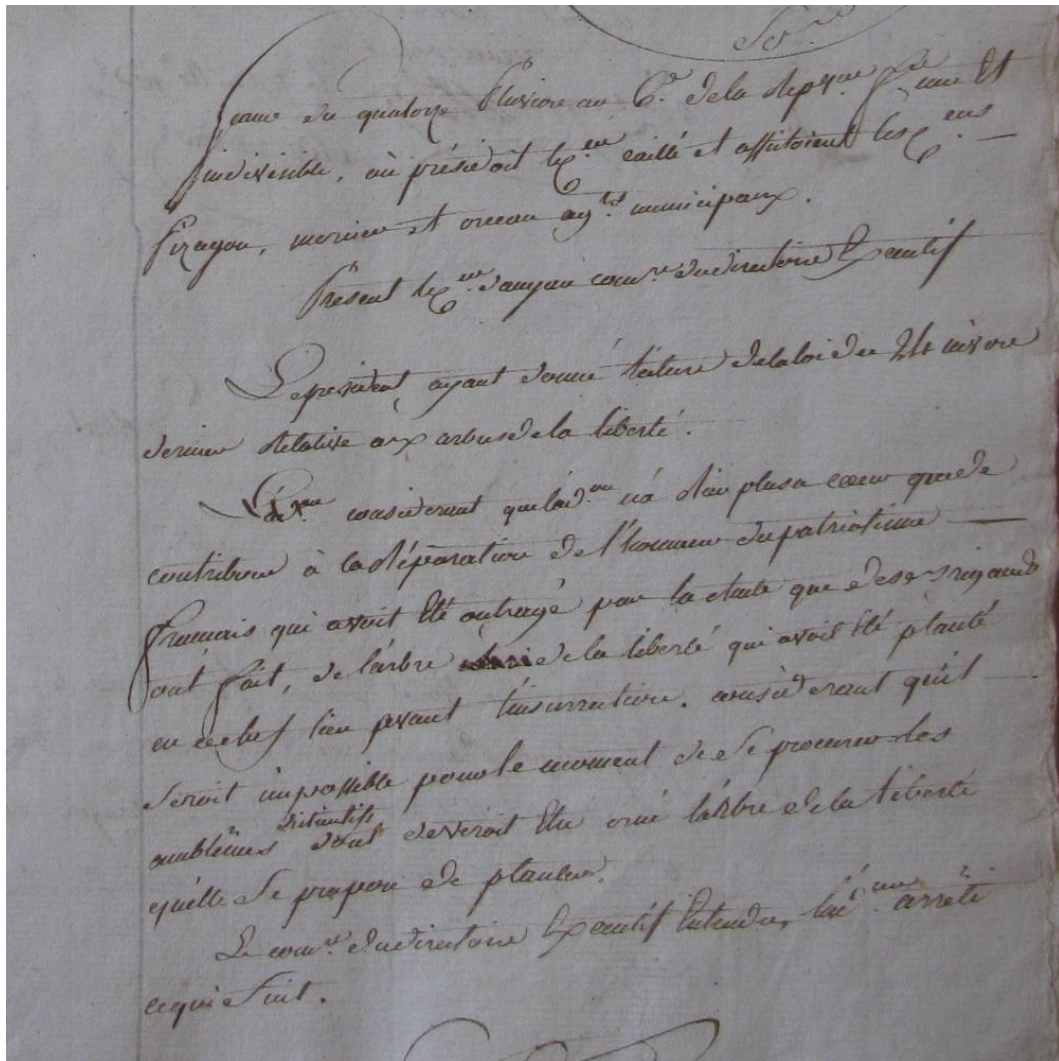 Séance du quatorze Pluviose an 6e. de la Repque. fse une Et
indivisible, où présidoit le Cen caillé et assistoient les Cens
Pizagou, mornier et oreau agts municipaux.
Présent le Cen. commre du directoire Executif
Le président ayant donné lecture de la loi du 24 nivose
dernier Relative aux arbres de la liberté.
L'adon considerant que l'adon n'a Rien plus a coeur que de
contribuer à la Réparation de l'honneur du patriotisme
francais qui avoit Eté outragé par la chute que des Brigands
ont fait, de l'arbre de la liberté qui avoit Eté planté
en ce chef lieu avant l'insurrection. considerant qu'il
Seroit impossible pour le moment de Se procurer les
amblêmes distintifs dont devroit Etre orné l'arbre de la liberté
qu'elle Se propose de planter.
Le commre du directoire Executif Entendu, l'adon arrête
ce qui Suit.